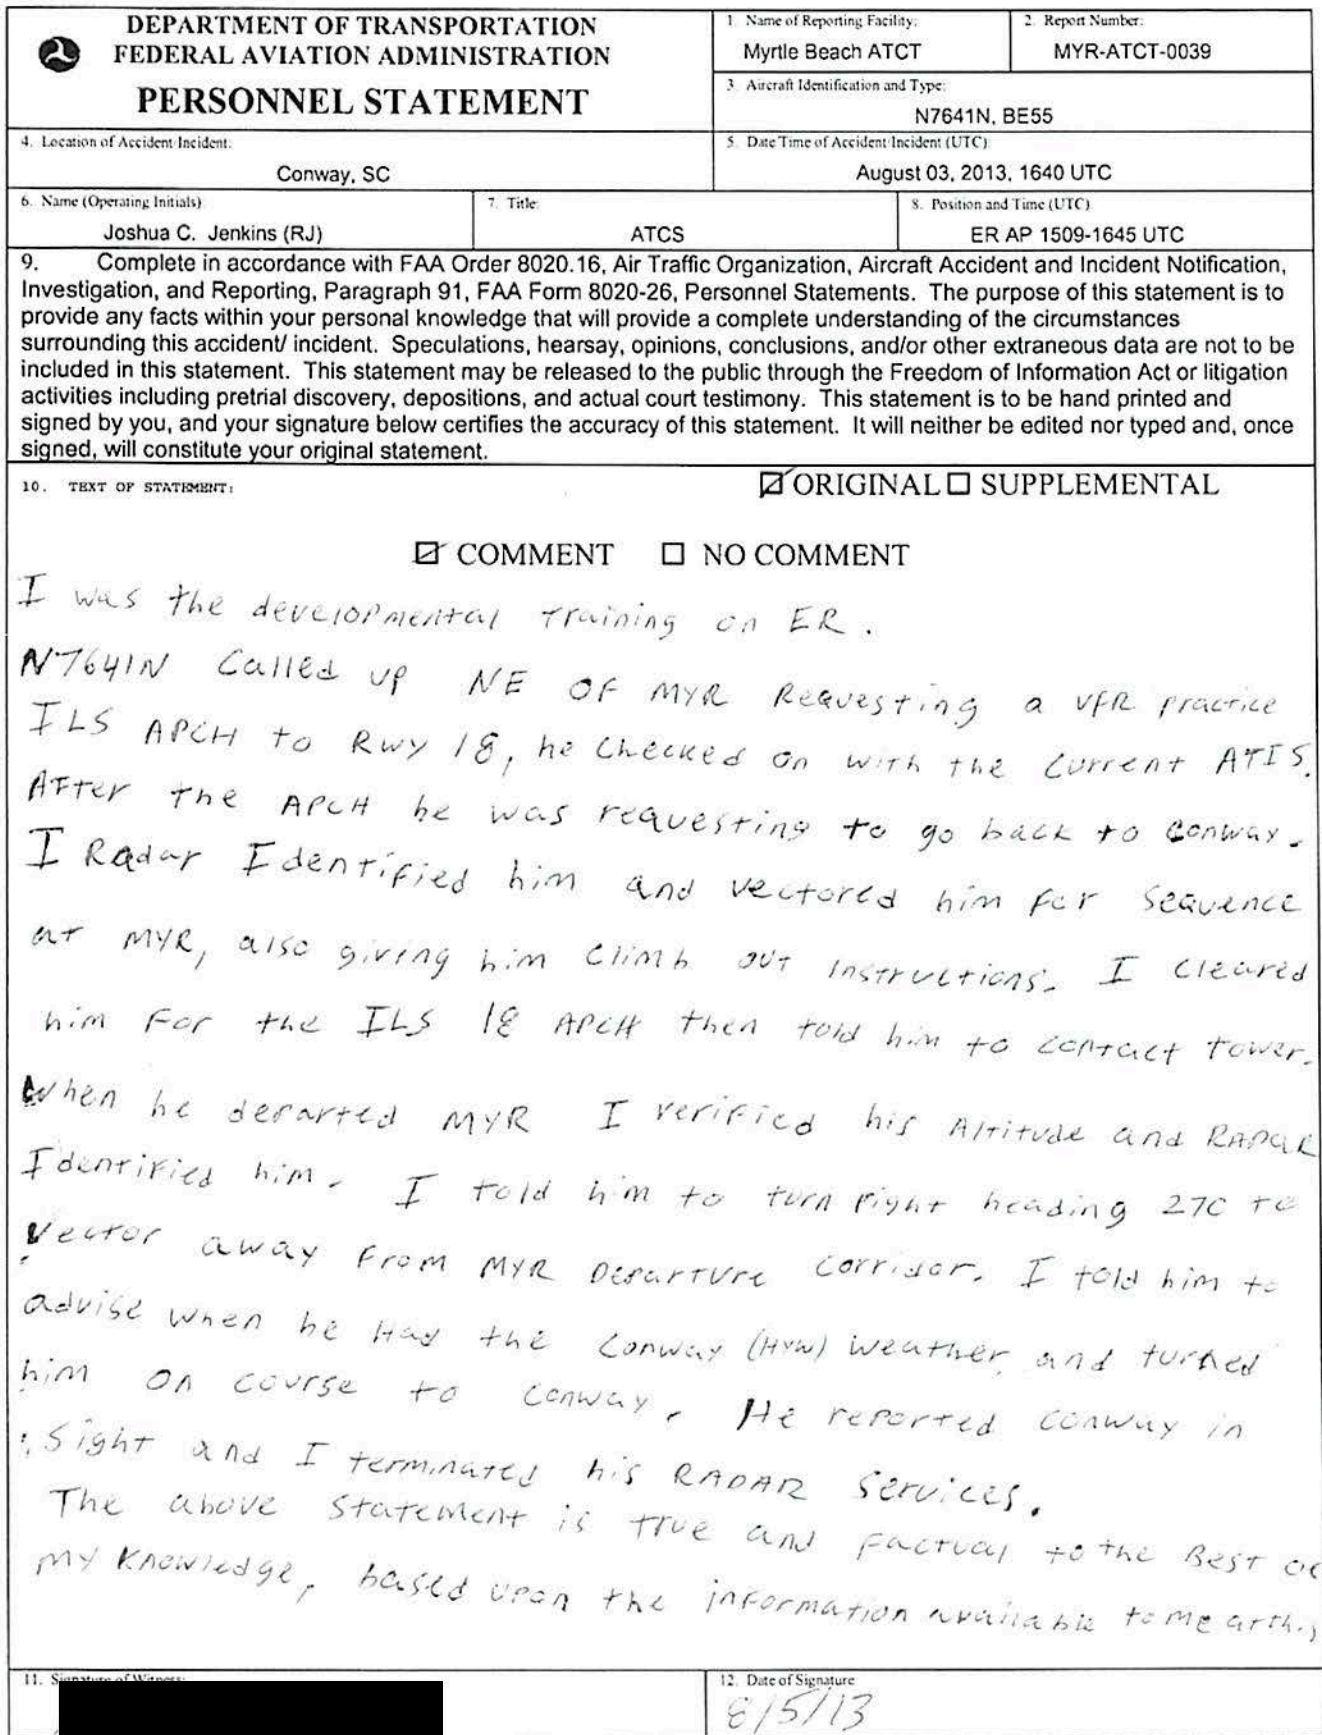 DEPARTMENT OF TRANSPORTATION
FEDERAL AVIATION ADMINISTRATION
PERSONNEL STATEMENT
1. Name of Reporting Facility:
Myrtle Beach ATCT
2. Report Number:
MYR-ATCT-0039
3. Aircraft Identification and Type:
N7641N, BE55
4. Location of Accident/Incident:
Conway, SC
5. Date/Time of Accident/Incident (UTC):
August 03, 2013, 1640 UTC
6. Name (Operating Initials)
Joshua C. Jenkins (RJ)
7. Title:
ATCS
8. Position and Time (UTC)
ER AP 1509-1645 UTC
9. Complete in accordance with FAA Order 8020.16, Air Traffic Organization, Aircraft Accident and Incident Notification,
Investigation, and Reporting, Paragraph 91, FAA Form 8020-26, Personnel Statements. The purpose of this statement is to
provide any facts within your personal knowledge that will provide a complete understanding of the circumstances
surrounding this accident/ incident. Speculations, hearsay, opinions, conclusions, and/or other extraneous data are not to be
included in this statement. This statement may be released to the public through the Freedom of Information Act or litigation
activities including pretrial discovery, depositions, and actual court testimony. This statement is to be hand printed and
signed by you, and your signature below certifies the accuracy of this statement. It will neither be edited nor typed and, once
signed, will constitute your original statement.
10. TEXT OF STATEMENT:
☑ ORIGINAL ☐ SUPPLEMENTAL
☑ COMMENT ☐ NO COMMENT
I was the developmental training on ER.
N7641N Called up NE OF MYR Requesting a VFR practice
ILS APCH to Rwy 18, he Checked on with the Current ATIS.
After the APCH he was requesting to go back to Conway.
I Radar Identified him and vectored him for Sequence
at MYR, also giving him Climb out instructions. I Cleared
him For the ILS 18 APCH then told him to contact tower.
When he departed MYR I verified his Altitude and RADAR
Identified him. I told him to turn right heading 270 to
Vector away From MYR Departure Corridor. I told him to
advise when he Had the Conway (HYW) Weather, and turned
him on course to Conway. He reported Conway in
Sight and I terminated his RADAR Services.
The above Statement is true and Factual to the Best of
my Knowledge, based upon the information available to me at this
11. Signature of Witness:
12. Date of Signature
8/5/13